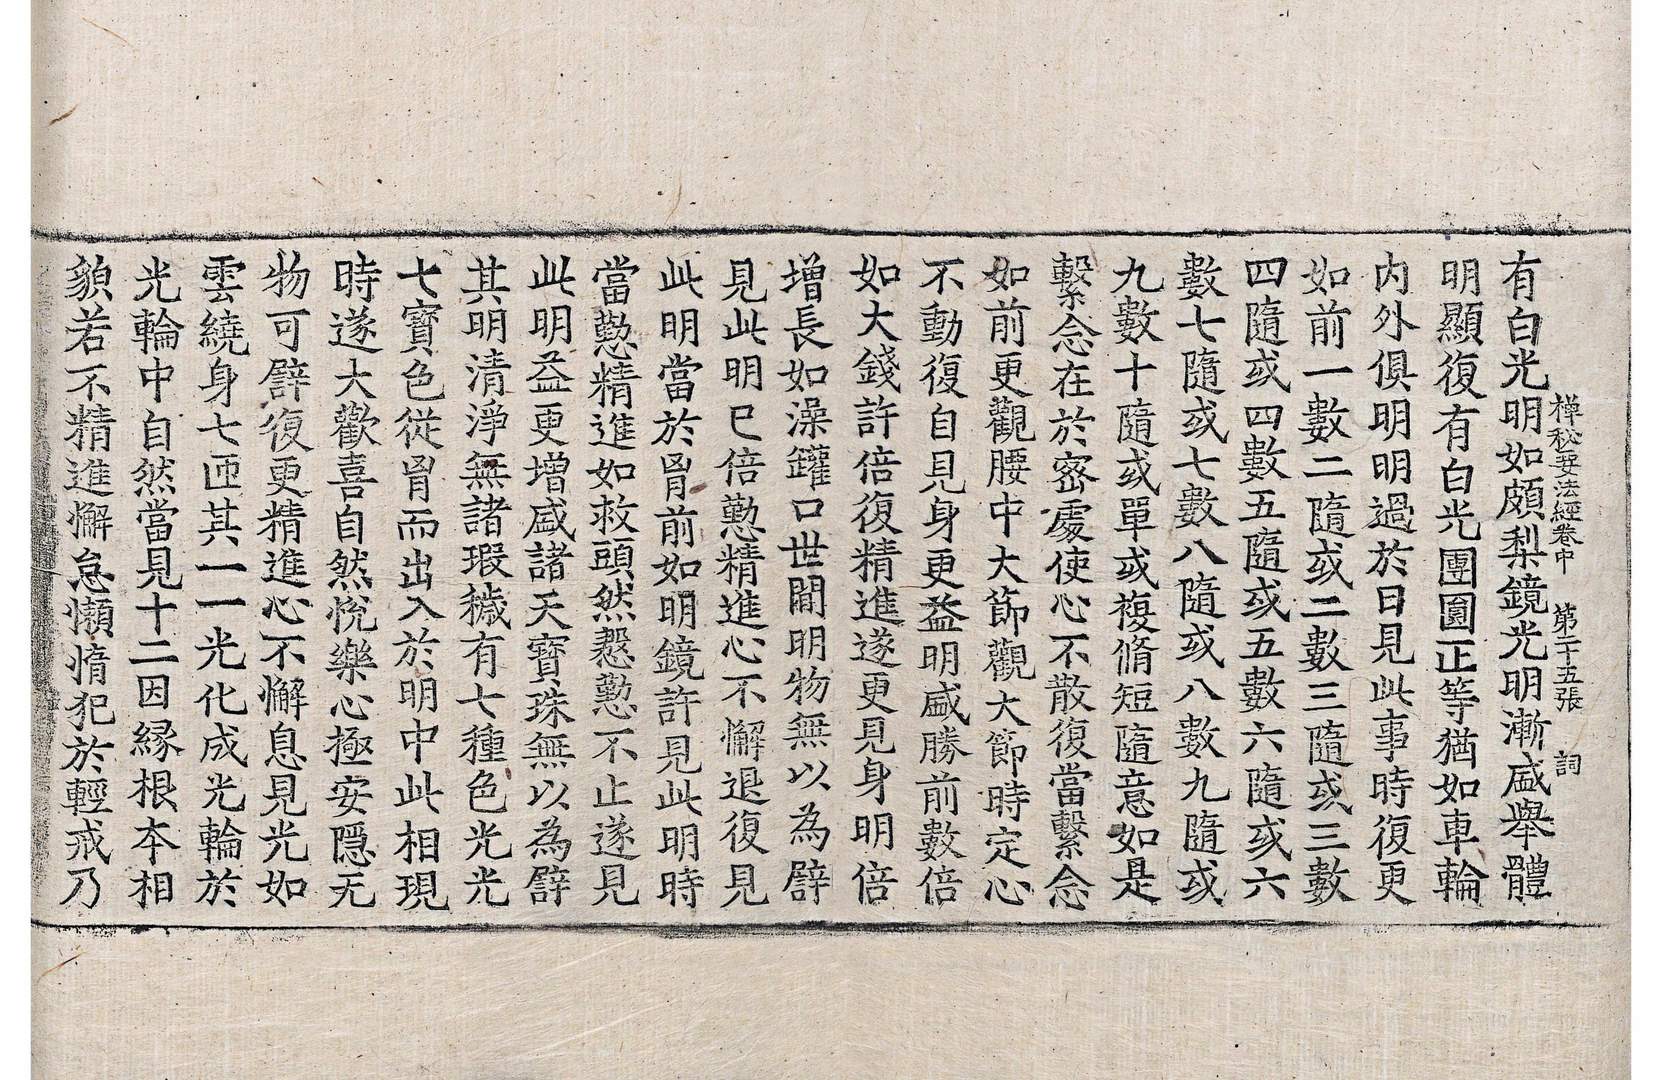 禪秘要法經卷中　第二十五張　詞
有白光明如頗梨鏡光明漸盛舉體
明顯復有白光團圓正等猶如車輪
内外俱明明過於日見此事時復更
如前一數二隨或二數三隨或三數
四隨或四數五隨或五數六隨或六
數七隨或七數八隨或八數九隨或
九數十隨或單或複脩短隨意如是
繫念在於密處使心不散復當繫念
如前更觀腰中大節觀大節時定心
不動復自見身更益明盛勝前數倍
如大錢許倍復精進遂更見身明倍
增長如澡鑵口世間明物無以為譬
見此明已倍懃精進心不懈退復見
此明當於胷前如明鏡許見此明時
當懃精進如救頭然慇懃不止遂見
此明益更增盛諸天寶珠無以為譬
其明清淨無諸瑕穢有七種色光光
七寶色從胷而出入於明中此相現
時遂大歡喜自然悅樂心極安隱无
物可譬復更精進心不懈息見光如
雲繞身七匝其一一光化成光輪於
光輪中自然當見十二因緣根本相
貌若不精進懈怠懶惰犯於輕戒乃